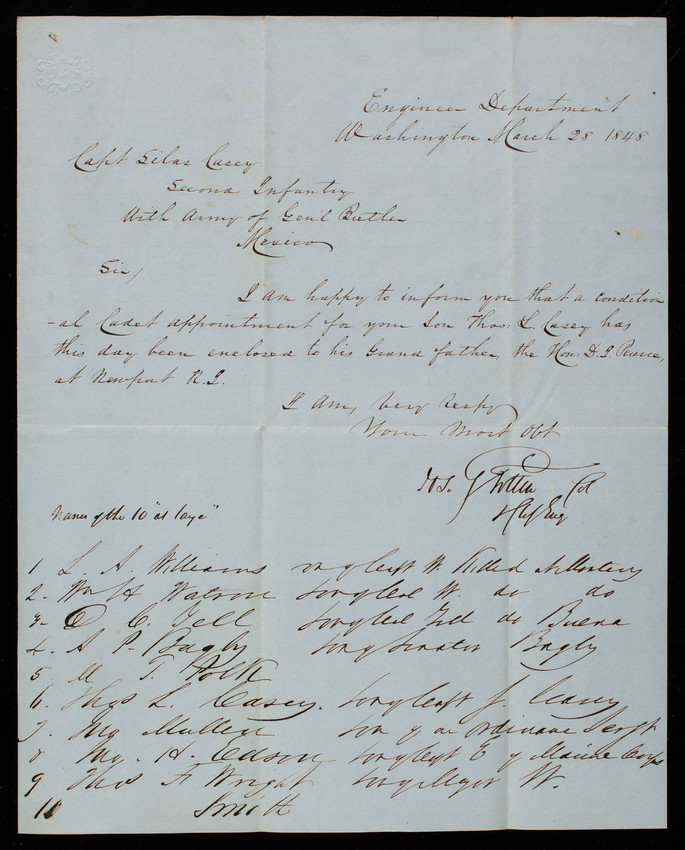 Engineer Department
Washington March 28 1848
Capt Silas Casey
Second Infantry
With Army of Genl Butler
Mexico
Sir,
I am happy to inform you that a condition
-al Cadet appointment for your Son Thos: L. Casey has
this day been enclosed to his Grand father, the Hon: D. J. Pearce,
at Newport R.I.
I Am, Very respy
Your Most Obt
Jos. G Totten Col
& Ch Eng
Names of the 10 "at large"
1 L. A. Williams son of Capt W. Killed at Monterey
2. Wm H Watson son of Col W. do do
3. D C. Yell son of Col Yell do Buena
4. A P. Bagby son of Senator Bagby
5 M T. Polk
6. Thos L. Casey. son of Capt S. Casey
7. Mullen son of an ordinance Sergt
8 H. Edson son of Capt E of Marine Corps
9 Thos F Wright son of Major W.
10 Smith